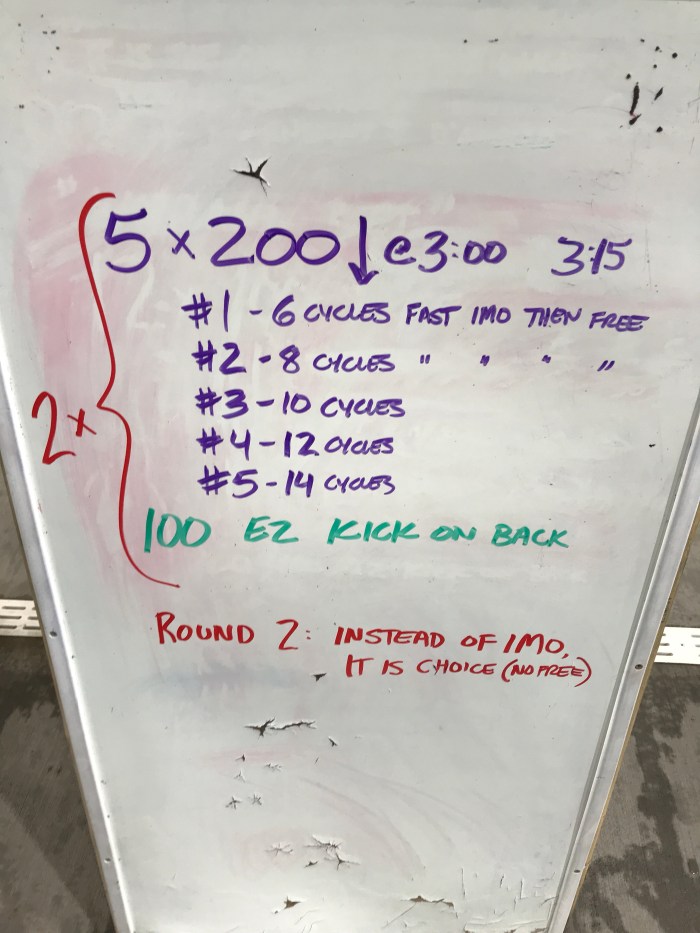 2x
5 x 200 ↓ @ 3:00 3:15
#1 - 6 CYCLES FAST IMO THEN FREE
#2 - 8 CYCLES " " " "
#3 - 10 CYCLES
#4 - 12 CYCLES
#5 - 14 CYCLES
100 EZ KICK ON BACK
ROUND 2: INSTEAD OF IMO,
IT IS CHOICE (NO FREE)